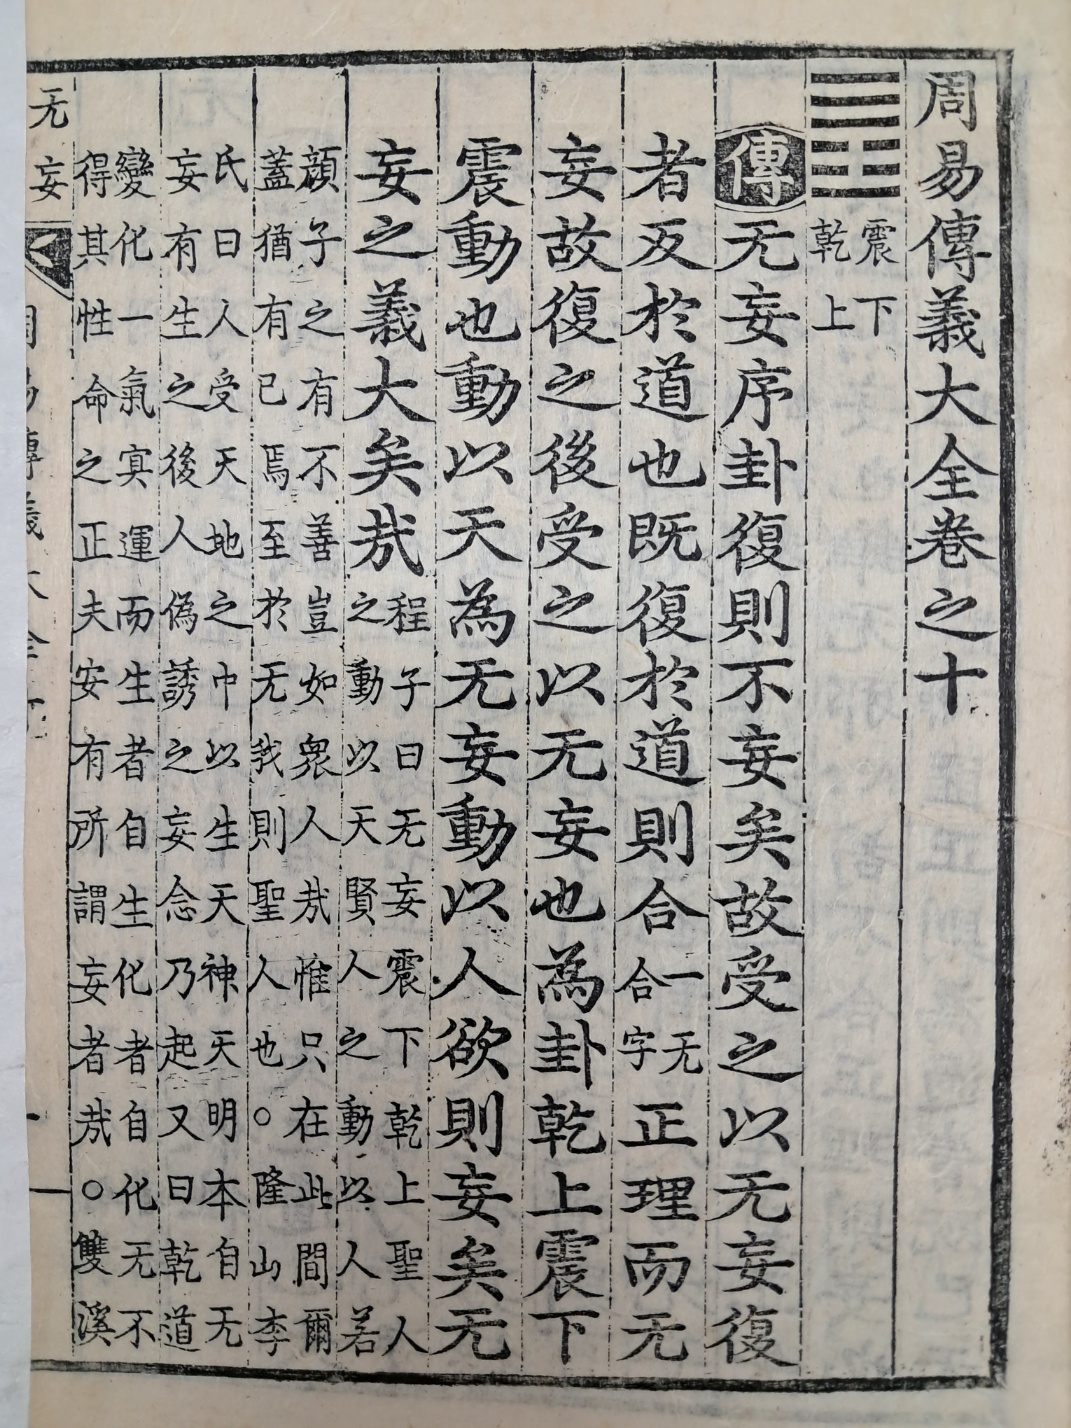 周易傳義大全卷之十
震下
乾上
傳无妄序卦復則不妄矣故受之以无妄復
者反於道也既復於道則合一无合字正理而无
妄故復之後受之以无妄也為卦乾上震下
震動也動以天為无妄動以人欲則妄矣无
妄之義大矣哉程子曰无妄震下乾上聖人
之動以天賢人之動以人若
顔子之有不善豈如衆人哉惟只在此間爾
蓋猶有已焉至於无我則聖人也○隆山李
氏曰人受天地之中以生天神天明本自无
妄有生之後人偽誘之妄念乃起又曰乾道
變化一氣寘運而生者自生化者自化无不
得其性命之正夫安有所謂妄者哉○雙溪
无妄